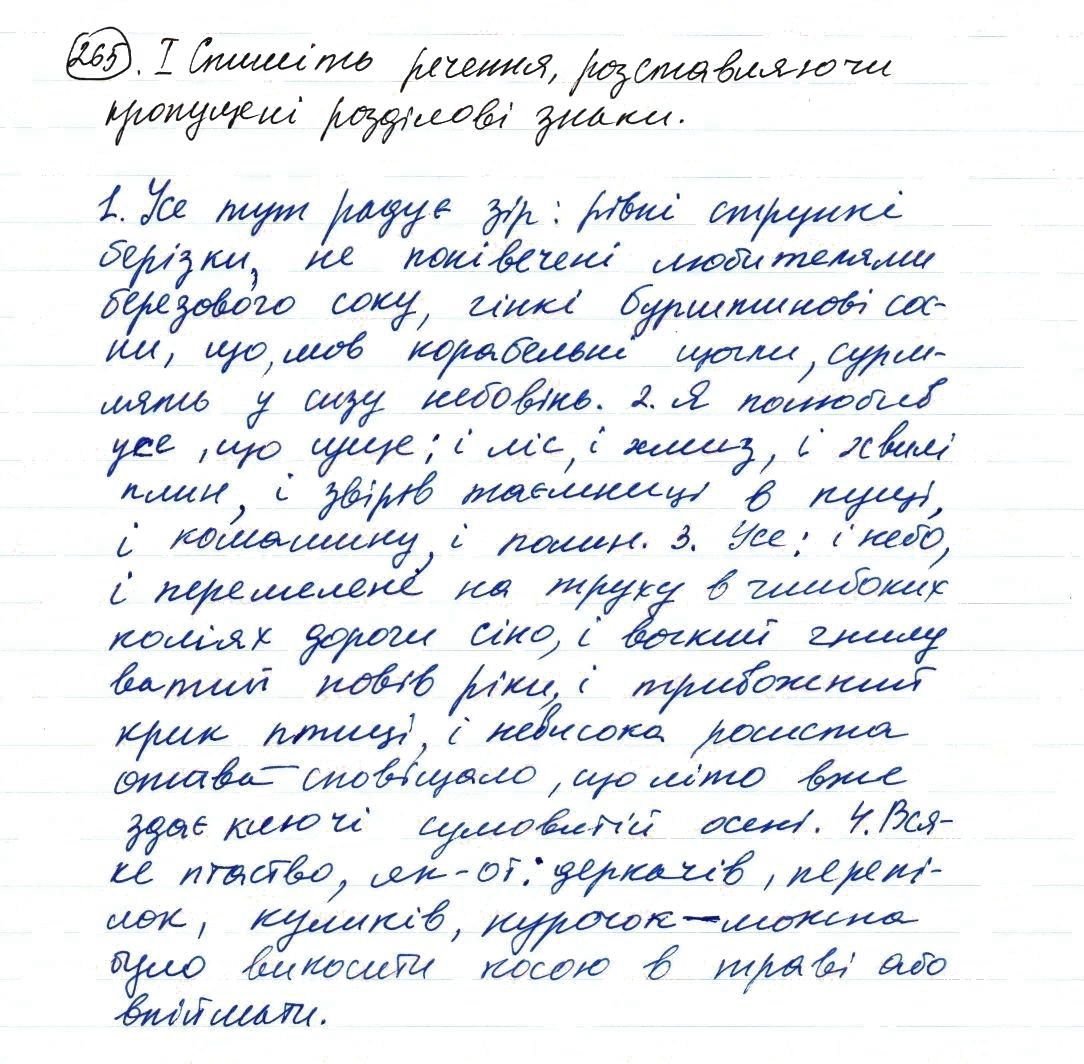 265. I Спишіть речення, розставляючи
пропущені розділові знаки.
1. Усе тут радує зір: рівні стрункі
берізки, не понівечені любителями
березового соку, гінкі бурштинові сос-
ни, що, мов корабельні щогли, сурм-
лять у сизу небовінь. 2. Я полюбив
усе, що суще: і ліс, і хмиз, і хвилі
плин, і звірів таємниці в пущі,
і комашину, і полин. 3. Усе: і небо,
і перемелене на труху в глибоких
коліях дороги сіно, і вогкий гнилу
ватий повів ріки, і тривожний
крик птиці, і невисока росиста
отава — сповіщало, що літо вже
здає ключі сумовитій осені. 4. Вся-
ке птаство, як-от: деркачів, перепі-
лок, куликів, курочок — можна
було викосити косою в траві або
впіймати.